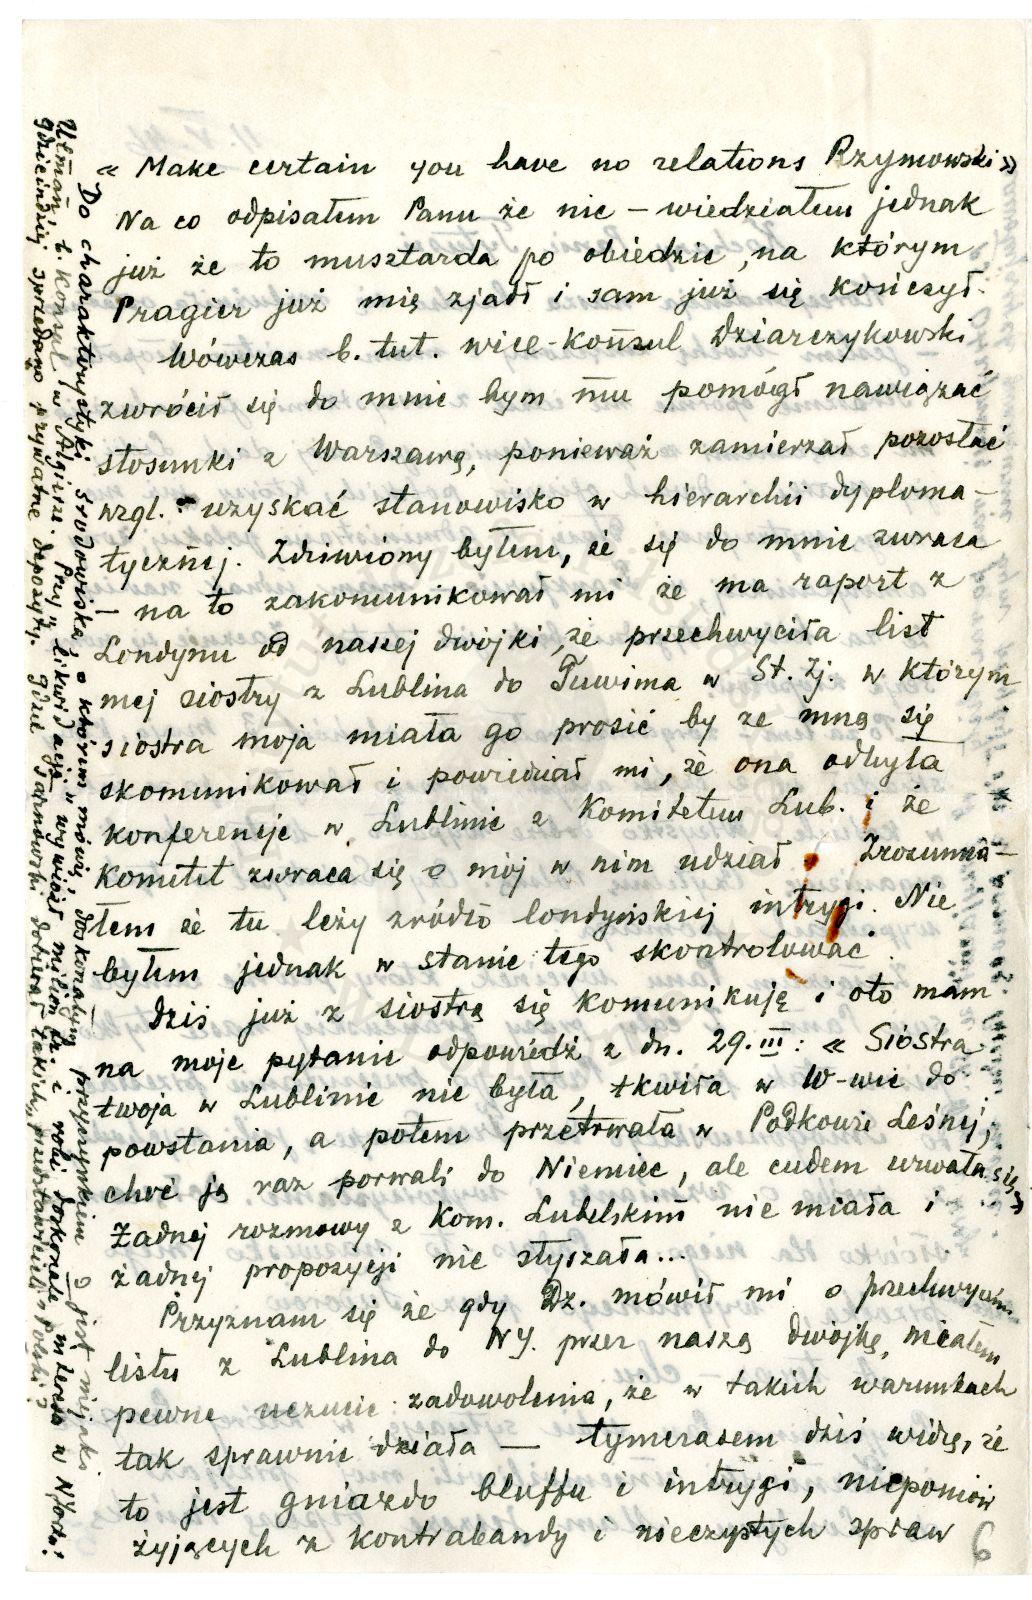 « Make certain you have no relations Rzymowski »
Na co odpisałem Panu że nie – wiedziałem jednak
już że to musztarda po obiedzie, na którym
Pragier już mię zjadł i sam już się kończył.
Wówczas b. tut. wice-konsul Dziarczykowski
zwrócił się do mnie bym mu pomógł nawiązać
stosunki z Warszawą, ponieważ zamierzał pozostać
wzgl. uzyskać stanowisko w hierarchii dyploma-
tycznej. Zdziwiony byłem, że się do mnie zwraca
– na to zakomunikował mi że ma raport z
Londynu od naszej dwójki, że przechwyciła list
mej siostry z Lublina do Tuwima w St. Zj. w którym
siostra moja miała go prosić by ze mną się
skomunikował i powiedział mi, że ona odbyła
konferencje w Lublinie z Komitetem Lub. i że
komitet zwraca się o mój w nim udział. Zrozumia-
łem że tu leży źródło londyńskiej intrygi. Nie
byłem jednak w stanie tego skontrolować.
Dziś już z siostrą się komunikuję i oto mam
na moje pytanie odpowiedź z dn. 29.III: « Siostra
twoja w Lublinie nie była, tkwiła w W-wie do
powstania, a potem przetrwała w Podkowie Leśnej,
choć ją raz porwali do Niemiec, ale cudem urwała się
Żadnej rozmowy z Kom. Lubelskim nie miała i
żadnej propozycji nie słyszała...
Przyznam się że gdy Dz. mówił mi o przechwyceniu
listu z Lublina do NY. przez naszą dwójkę, miałem
pewne uczucie zadowolenia, że w takich warunkach
tak sprawnie działa – tymczasem dziś widzę, że
to jest gniazdo bluffu i intrygi, niepomiów
żyjących z kontrabandy i nieczystych spraw
6
Do charakterystyki środowiska, o którem mówię, doskonałym przyczynkiem jest niejaki
Ulman, b. Konsul w Algierze. Przy „likwidacji" wywiózł milion fr. i robi doskonałe interesa w N. Yorku!
gdzieindziej sprzedano prywatne depozyty. gdzie Tarnowski dobierał takich „przedstawicieli" Polski?